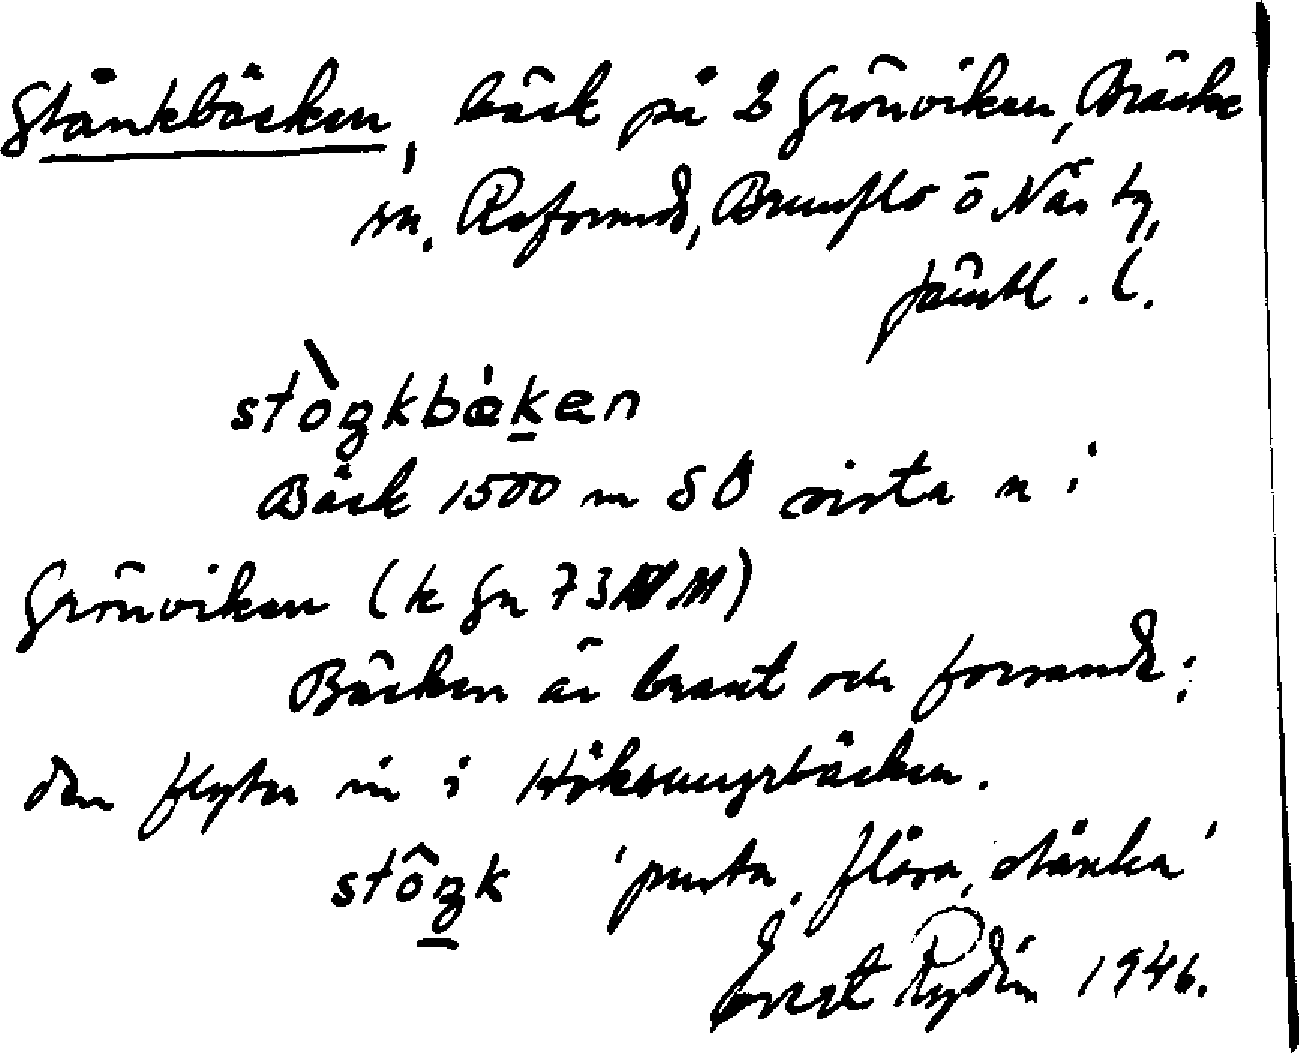 Stånkbäcken, bäck på 2 Grönviken, Bräcke
sn. Refsunds, Brunflo o Näs tg,
Jämtl. l.
stòŋkbækən
Bäck 1500 m SÖ sista n i
Grönviken (k gn 73 M)
Bäcken är brant och forsande;
den flyter in i Höksungsbäcken.
stôŋk 'pusta, flåsa, stånka'
Evert Rydin 1946.